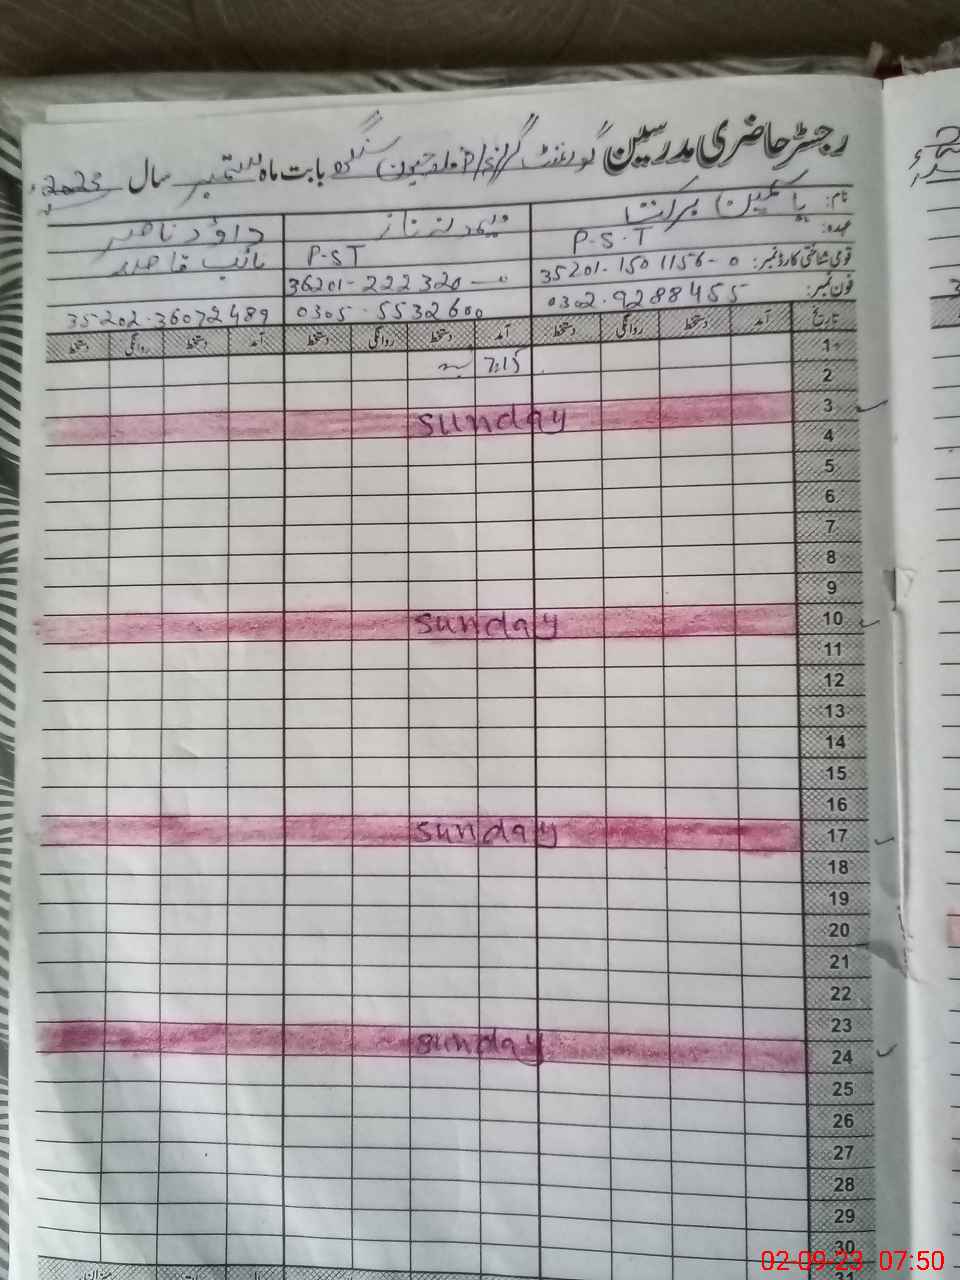 رجسٹر حاضری مدرسین گورنمنٹ گرلز بابت ماہ ستمبر سال 2023ء
نام: یاسمین برکت ناز داؤد ناصر
عہدہ: P.S.T P.ST نائب قاصد
قومی شناختی کارڈ نمبر: 35201-1501156-0 36201-222320-0
فون نمبر: 0302.9288455 0305-5532600 35202-36072489
تاریخ آمد دستخط روانگی دستخط آمد دستخط روانگی دستخط آمد دستخط روانگی دستخط
1
2 7:15
3 sunday
4
5
6
7
8
9
10 sunday
11
12
13
14
15
16
17 sunday
18
19
20
21
22
23
24 sunday
25
26
27
28
29
30
02-09-23 07:50